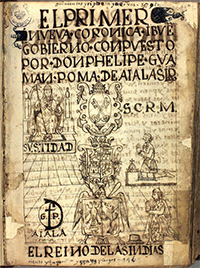 EL PRIMER
NVEVA CORONICA I BVE
GOBIERNO CONPVESTO
POR DON PHELIPE GVA
MAN POMA DE AIALA S IR
S.C.R.M.
SVSTIDAD
AIALA
EL REINO DE LAS INDIAS